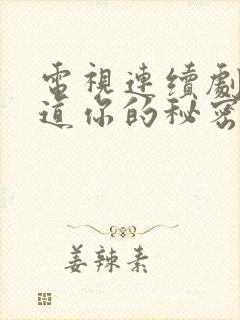 電視連續劇
道你的秘密
姜辣素